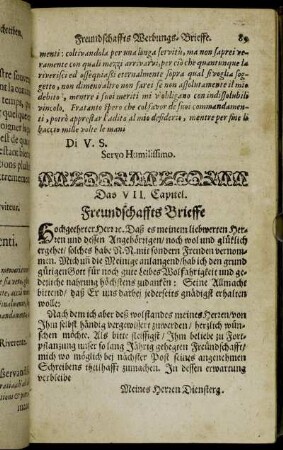 Freundschaffts Werbungs-Brieffe. 89
menti: coltivandola per una lunga servitù, ma non saprei ve-
ramente con quali mezzi arrivarvi, per ciò che quantunque la
riverisci ed ossequiassi eternalmente sopra qual si voglia sog-
getto, non dimenoaltro non farei se non assolutamente il mio
debito, mentre i suoi meriti mi obligano con indissolubili
vincolo, Fratanto spero che co'l favor de suoi commandamen-
ti, potrò apprestar l'adito al mio desiderio, mentre per fine li
baccio mille volte le mani
Di V. S.
Servo Humilissimo.
Das VII. Capitel.
Freundschaffts Brieffe
Hochgeehrter Herr ꝛc. Daß es meinem liebwerten Her-
ren und dessen Angehörigen, noch wol und glüklich
ergehet, solches habe N. N. mit sondern Freuden vernom-
men. Mich uñ die Meinige anlangend, hab ich den grund-
gütigen Gott für noch gute Leibes Wolfahrigkeit und ge-
deyliche nahrung höchstens zudanken: Seine Allmacht
bittend, daß Er uns darbey jederseits gnädigst erhalten
wolle;
Nach dem ich aber deß wolstandes meines Herren, von
Ihm selbst händig vergewißert zuwerden, herzlich wün-
schen möchte. Als bitte fleissigst, Ihm beliebe zu Fort-
pflanzung unser so lang Jährig gehegten Freündschafft,
mich wo möglich bey nächster Post seines angenehmen
Schreibens theilhafft zumachen. In dessen erwartung
verbleibe
Meines Herren Diensterg.